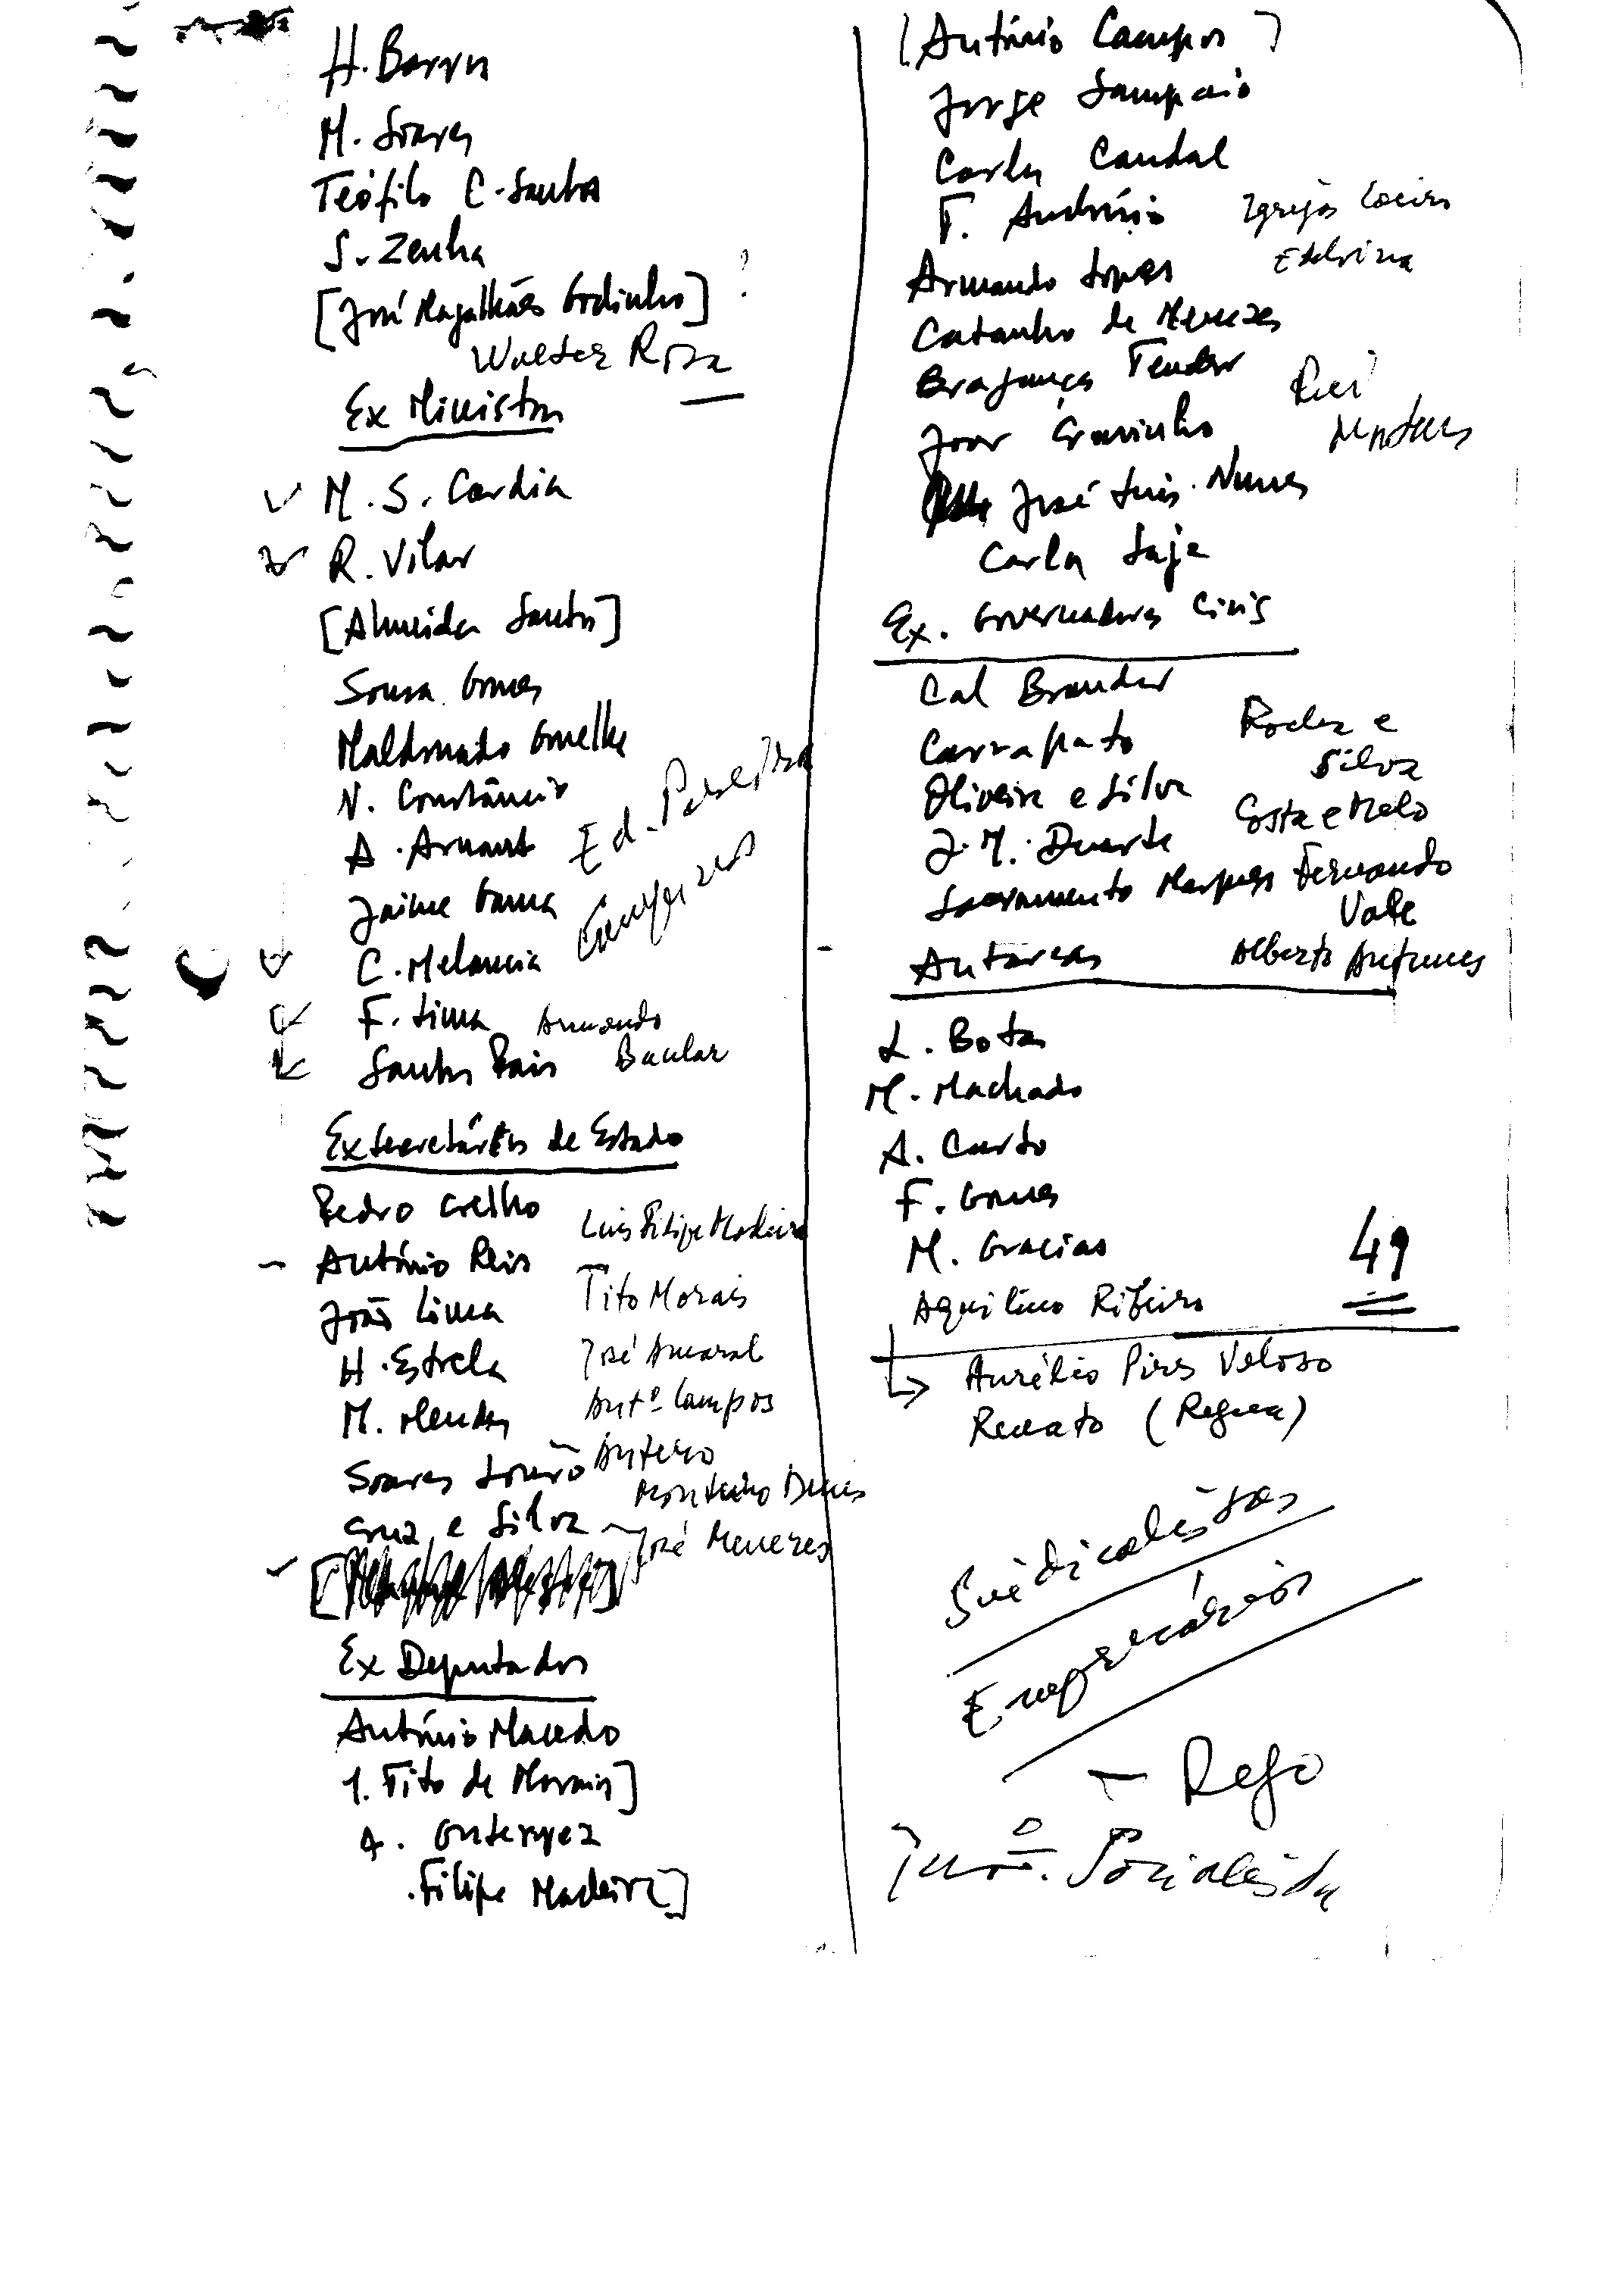 H. Barros
M. Soares
Teófilo C. Santos
S. Zenha
[José Magalhães Godinho] ?
Walter Rosa
Ex Ministros
M. S. Cardia
R. Vilar
[Almeida Santos]
Sousa Gomes
Maldonado Gonelha
N. Constâncio
A. Arnaut Ed. Pereira
Jaime Gama
C. Melancia
F. Lima Armando
Santos Pais Bacelar
Ex Secretários de Estado
Pedro Coelho Luis Filipe Madeira
António Reis
João Lima Tito Morais
H. Estrela José Amaral
M. Mendes Antº Campos
Soares Louro Antero
Monteiro Diniz
Cruz e Silva José Menezes
Ex Deputados
António Macedo
1. Tito de Morais]
A. Guterrez
. Filipe Madeira]
[António Campos]
Jorge Sampaio
Carlos Candal
F. Igrejas Caeiro
Armando Lopes Etelvina
Catanho de Menezes
Bragança Tender
João Gravinho Rui Mateus
José Luis Nunes
Carlos Laje
Ex. Governadores Civis
Cal Brandão
Carrapato Rocha e Silva
Oliveira e Silva
J. M. Duarte Costa e Melo
Sacramento Marques Fernando Vale
Autarcas Alberto Antunes
L. Botas
M. Machado
A. Curto
F. Gomes
M. Gracias 49
Aquilino Ribeiro
Aurélio Pires Veloso
Renato (Regua)
Sindicalistas
Empresários
- Rego
Juvº. Socialista